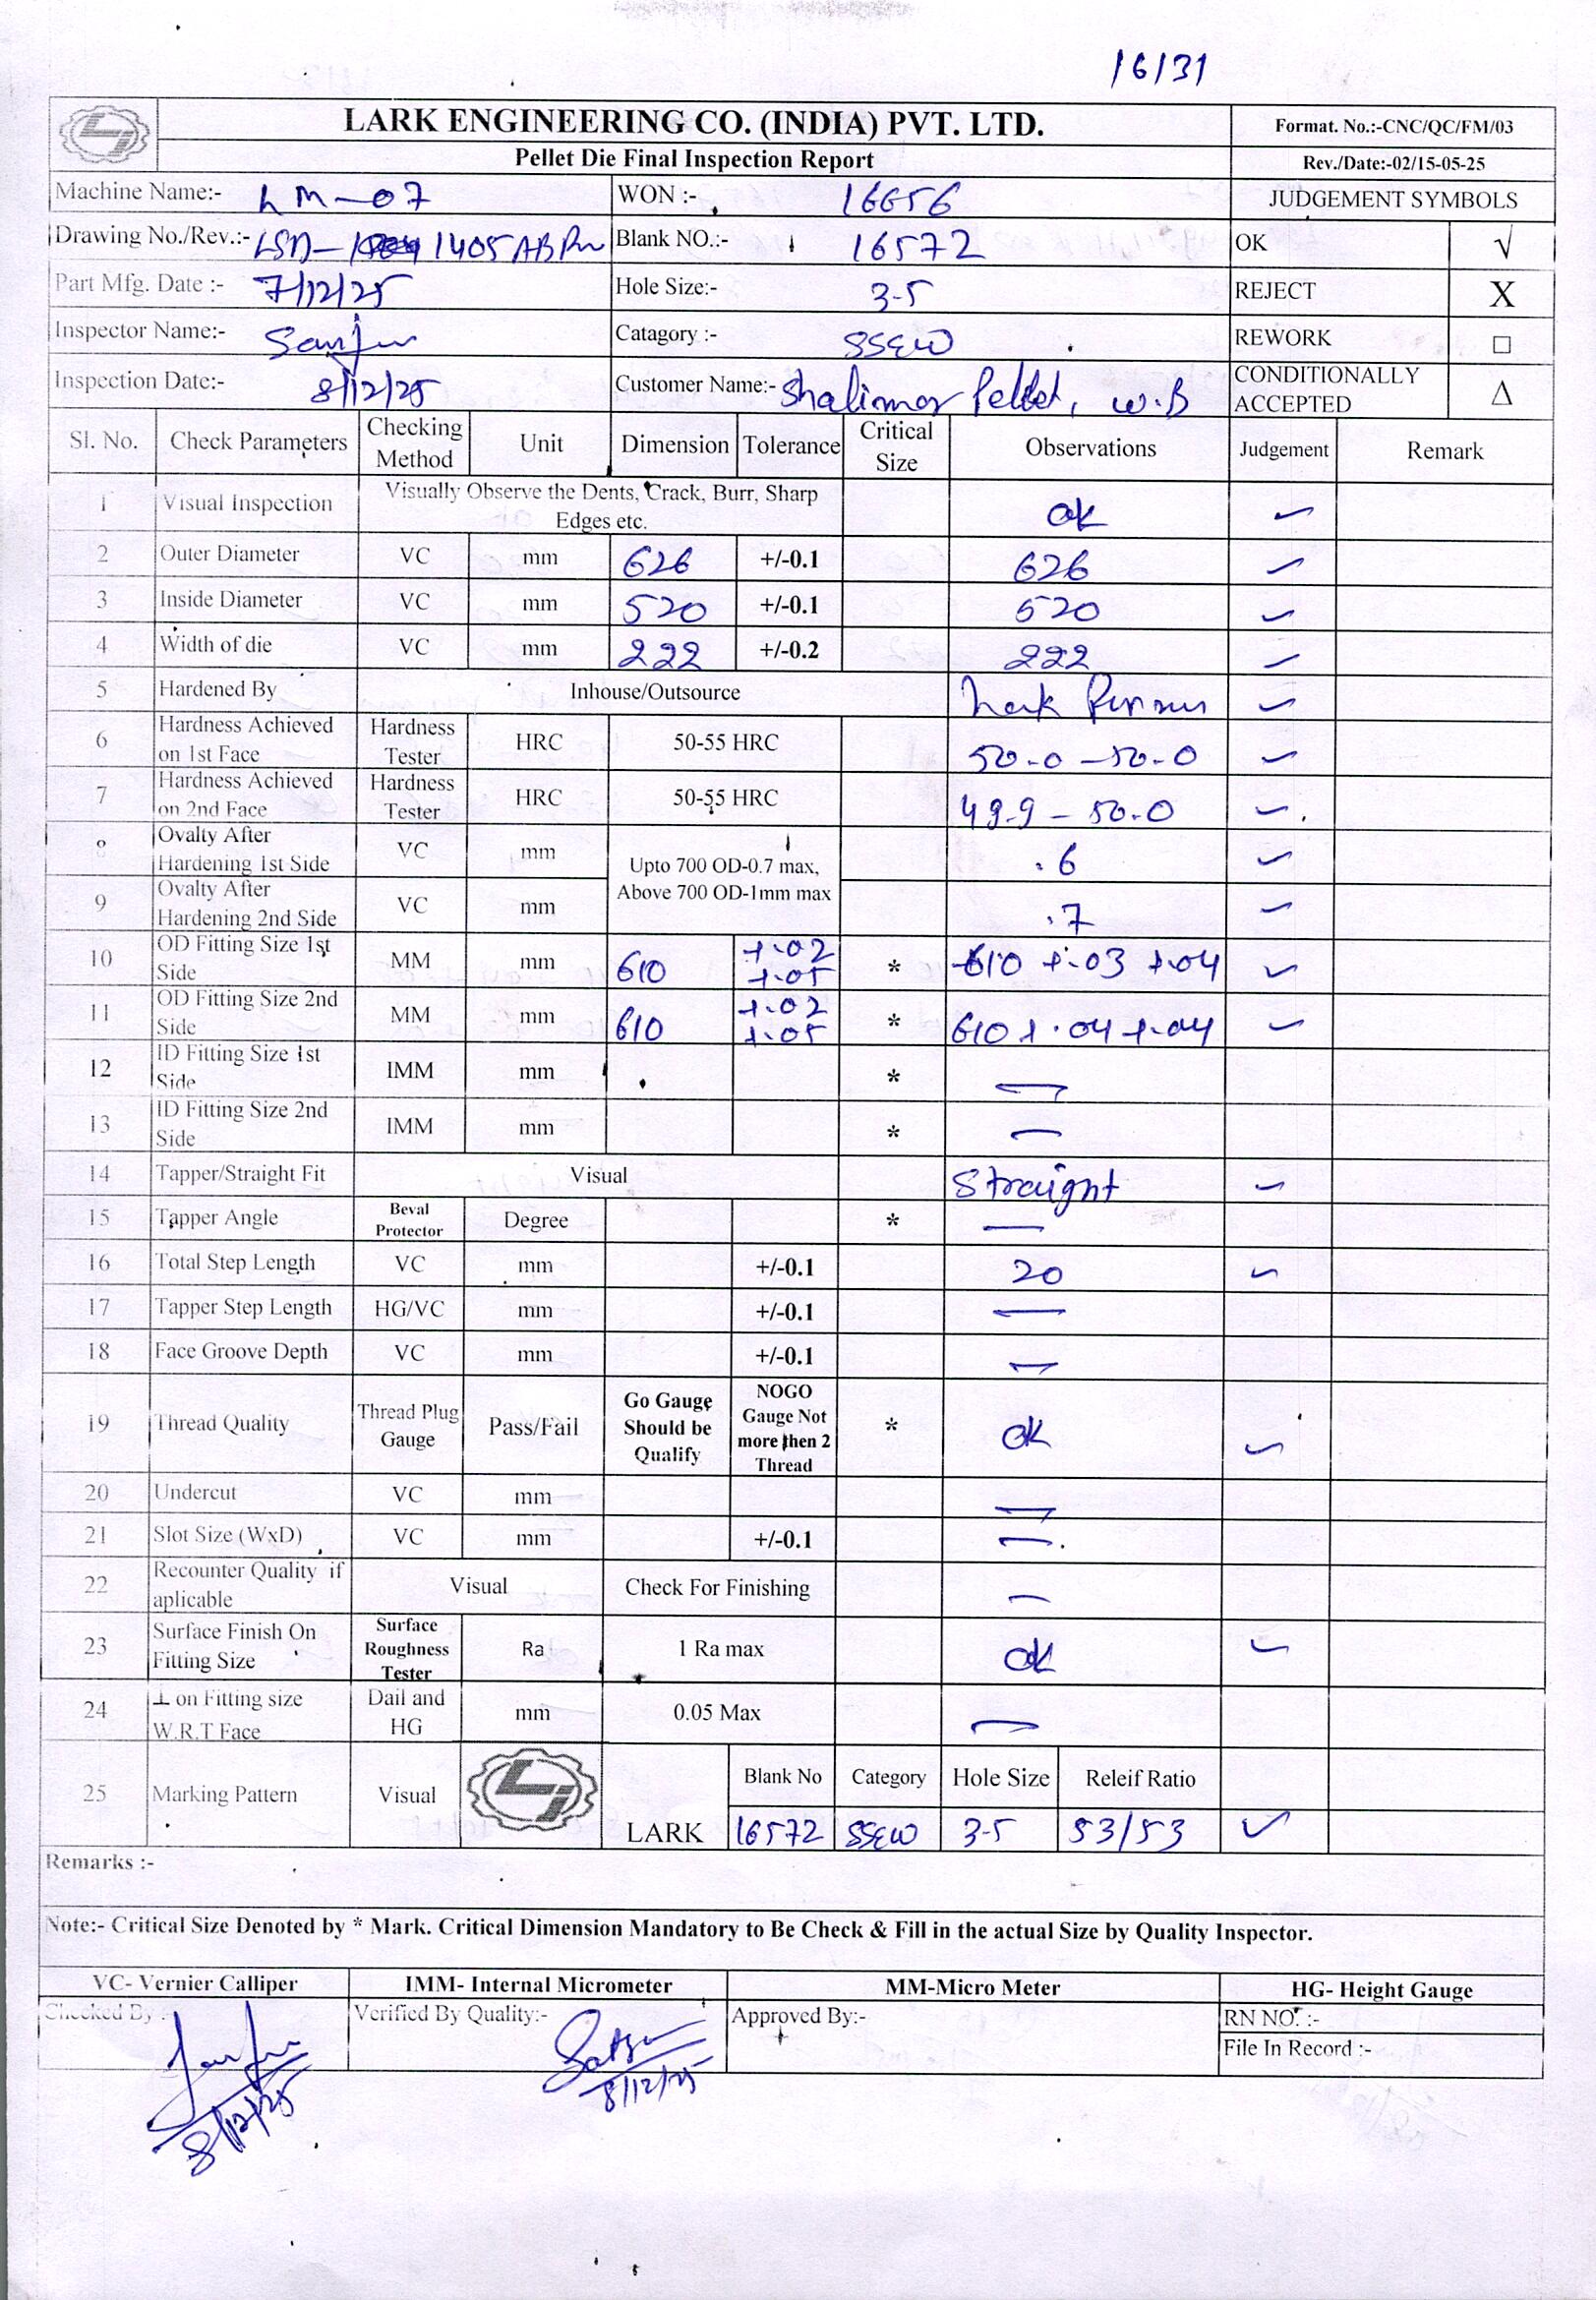 16131
LARK ENGINEERING CO. (INDIA) PVT. LTD.
Format. No.:-CNC/QC/FM/03
Pellet Die Final Inspection Report
Rev./Date:-02/15-05-25
Machine Name:- LM-07 WON :- 16656 JUDGEMENT SYMBOLS
Drawing No./Rev.:- 1405 Blank NO.:- 16572 OK √
Part Mfg. Date :- 7/12/25 Hole Size:- 3.5 REJECT X
Inspector Name:- Sanju Catagory :- SSEW REWORK □
Inspection Date:- 8/12/25 Customer Name:- Shalimar Pellet, W.B CONDITIONALLY ACCEPTED Δ
Sl. No. Check Parameters Checking Method Unit Dimension Tolerance Critical Size Observations Judgement Remark
1 Visual Inspection Visually Observe the Dents, Crack, Burr, Sharp Edges etc. ok ✓
2 Outer Diameter VC mm 626 +/-0.1 626 ✓
3 Inside Diameter VC mm 520 +/-0.1 520 ✓
4 Width of die VC mm 222 +/-0.2 222 ✓
5 Hardened By Inhouse/Outsource Lark ✓
6 Hardness Achieved on 1st Face Hardness Tester HRC 50-55 HRC 50.0 - 50.0 ✓
7 Hardness Achieved on 2nd Face Hardness Tester HRC 50-55 HRC 49.9 - 50.0 ✓
8 Ovalty After Hardening 1st Side VC mm Upto 700 OD-0.7 max, Above 700 OD-1mm max .6 ✓
9 Ovalty After Hardening 2nd Side VC mm .7 ✓
10 OD Fitting Size 1st Side MM mm 610 +.02 +.05 * 610 +.03 +.04 ✓
11 OD Fitting Size 2nd Side MM mm 610 +.02 +.05 * 610 +.04 +.04 ✓
12 ID Fitting Size 1st Side IMM mm * —
13 ID Fitting Size 2nd Side IMM mm * —
14 Tapper/Straight Fit Visual Straight ✓
15 Tapper Angle Beval Protector Degree * —
16 Total Step Length VC mm +/-0.1 20 ✓
17 Tapper Step Length HG/VC mm +/-0.1 —
18 Face Groove Depth VC mm +/-0.1 —
19 Thread Quality Thread Plug Gauge Pass/Fail Go Gauge Should be Qualify NOGO Gauge Not more then 2 Thread * ok ✓
20 Undercut VC mm —
21 Slot Size (WxD) VC mm +/-0.1 —
22 Recounter Quality if aplicable Visual Check For Finishing —
23 Surface Finish On Fitting Size Surface Roughness Tester Ra 1 Ra max ok ✓
24 ⊥ on Fitting size W.R.T Face Dail and HG mm 0.05 Max —
25 Marking Pattern Visual LARK Blank No Category Hole Size Releif Ratio
16572 SSEW 3.5 53/53 ✓
Remarks :-
Note:- Critical Size Denoted by * Mark. Critical Dimension Mandatory to Be Check & Fill in the actual Size by Quality Inspector.
VC- Vernier Calliper IMM- Internal Micrometer MM-Micro Meter HG- Height Gauge
Checked By :- Verified By Quality:- Approved By:- RN NO. :-
File In Record :-
8/12/25 8/12/25